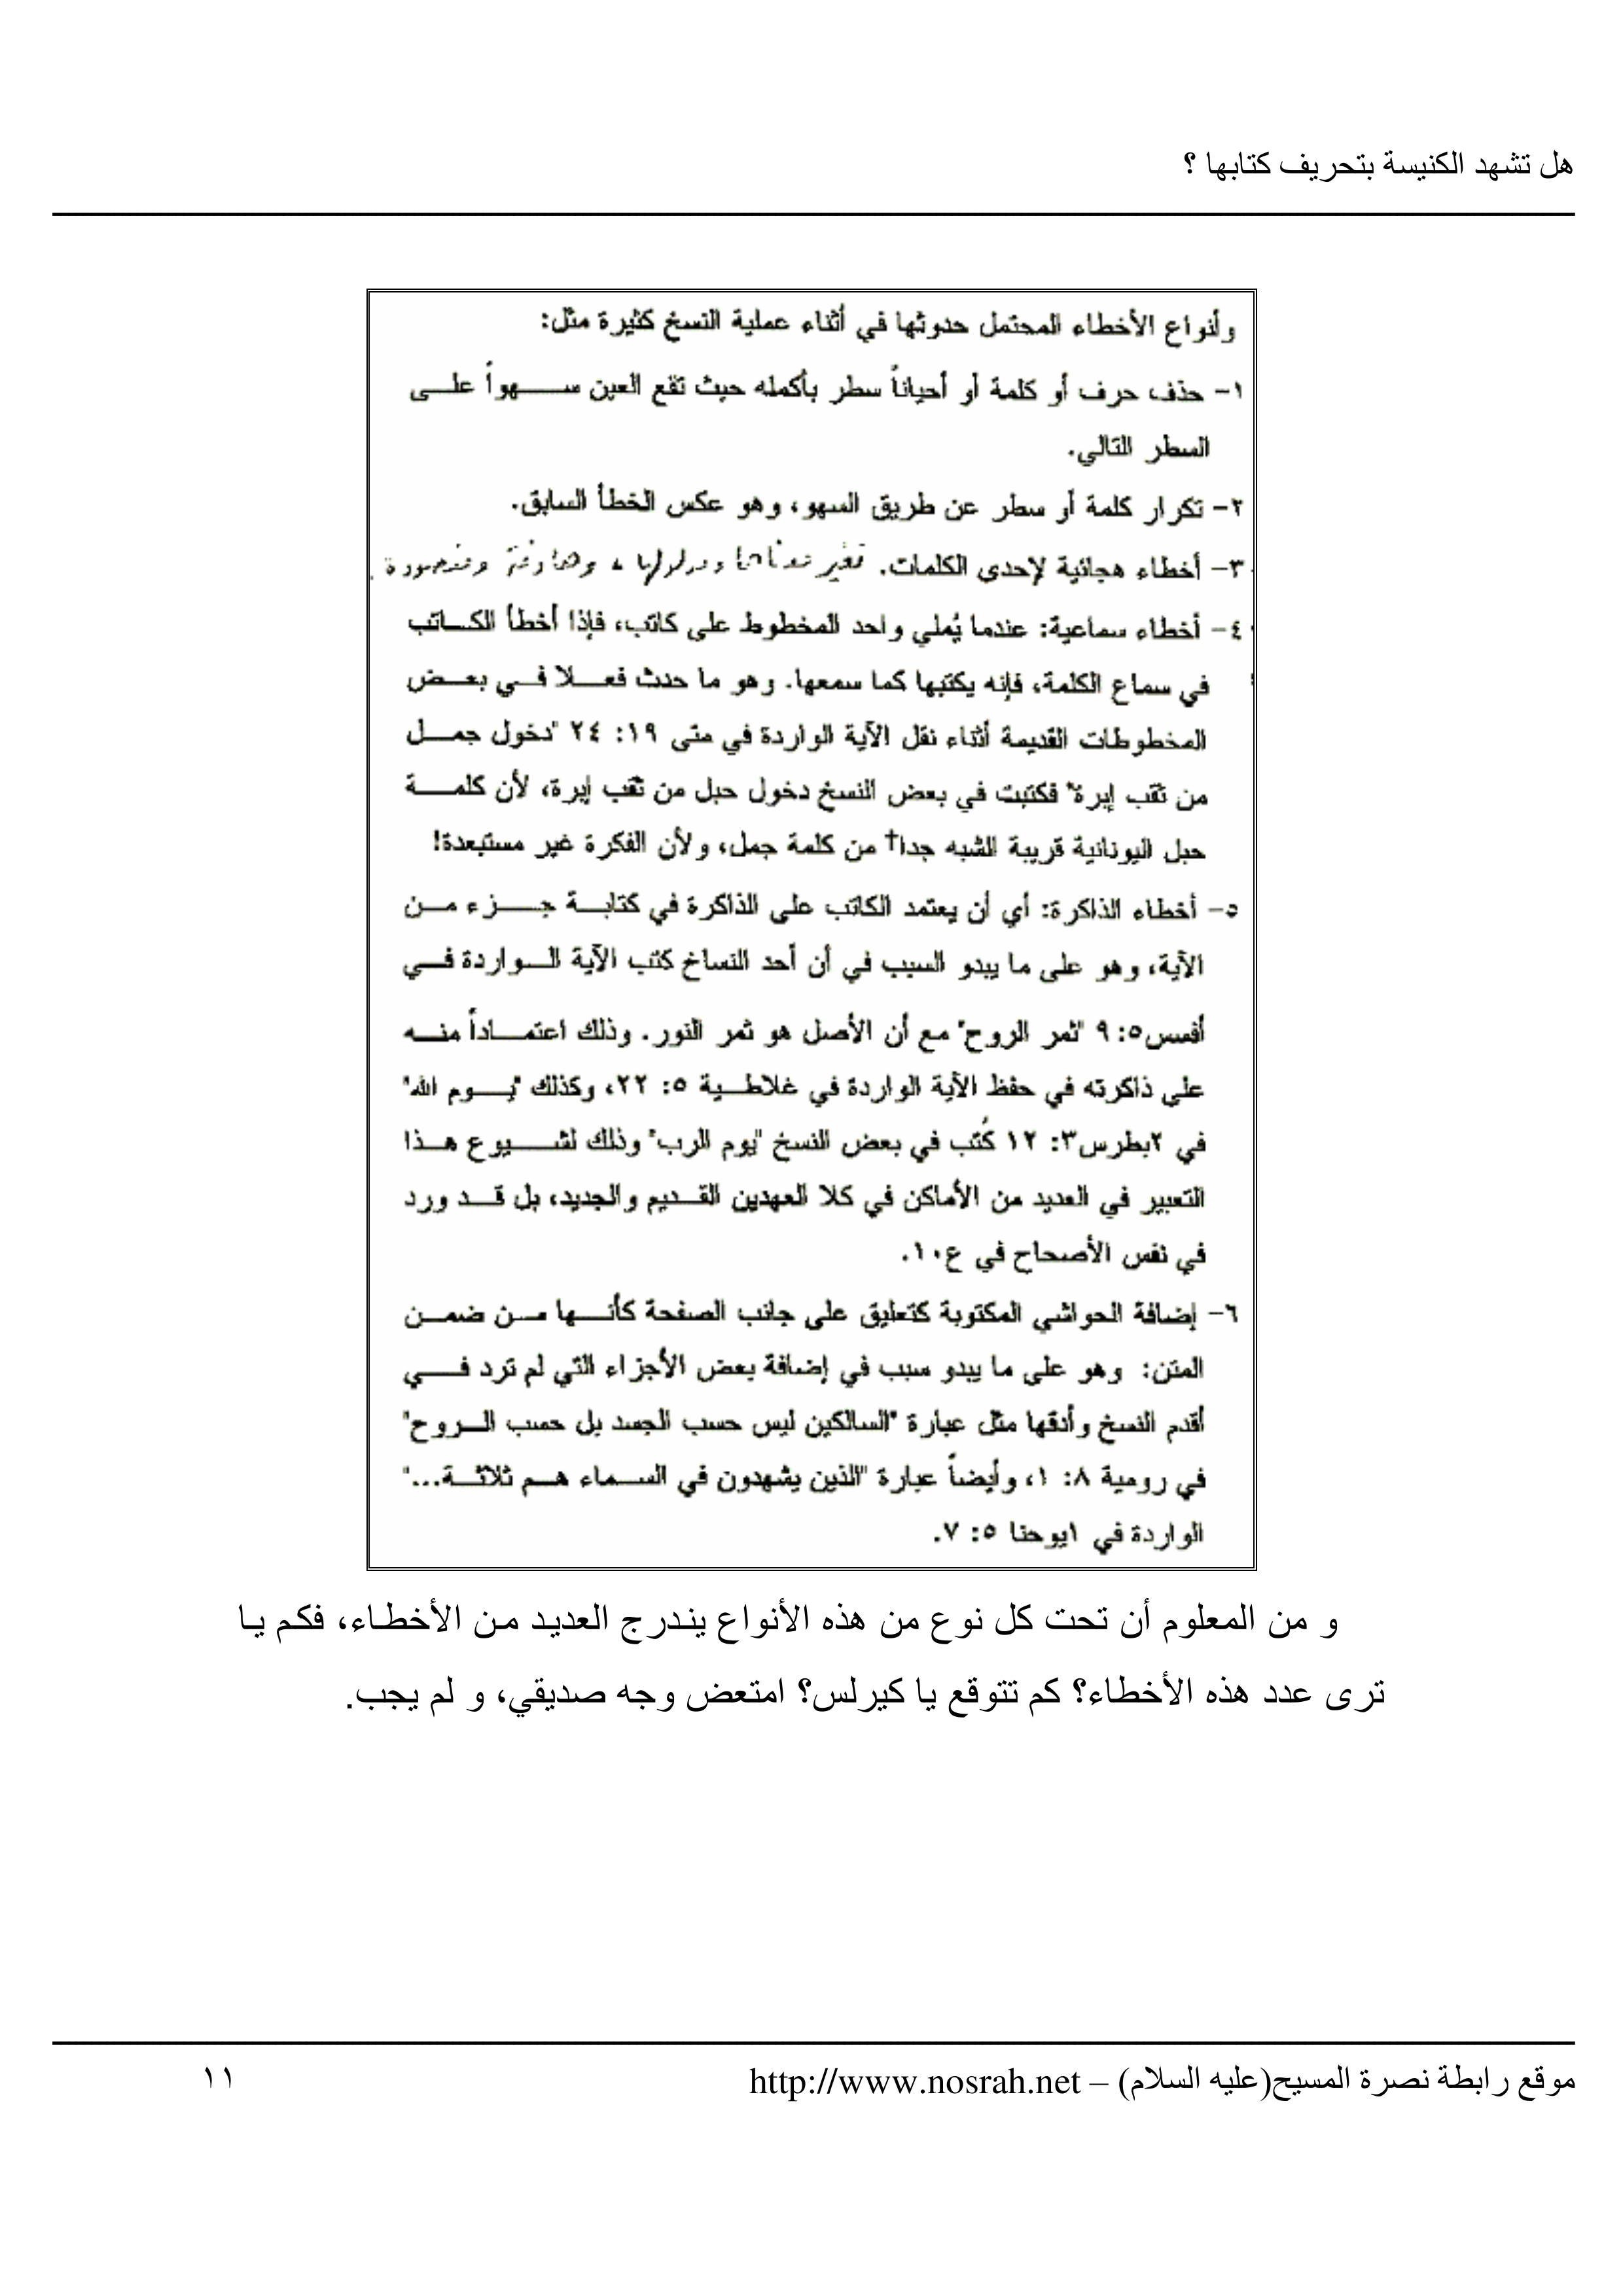 هل تشهد الكنيسة بتحريف كتابها ؟
وأنواع الأخطاء المحتمل حدوثها في أثناء عملية النسخ كثيرة مثل:
١- حذف حرف أو كلمة أو أحياناً سطر بأكمله حيث تقع العين سهواً على
السطر التالي.
٢- تكرار كلمة أو سطر عن طريق السهو، وهو عكس الخطأ السابق.
٣- أخطاء هجائية لإحدى الكلمات.
٤- أخطاء سماعية: عندما يُملي واحد المخطوط على كاتب، فإذا أخطأ الكاتب
في سماع الكلمة، فإنه يكتبها كما سمعها. وهو ما حدث فعلا في بعض
المخطوطات القديمة أثناء نقل الآية الواردة في متى ١٩: ٢٤ "دخول جمل
من ثقب إبرة" فكتبت في بعض النسخ دخول حبل من ثقب إبرة، لأن كلمة
حبل اليونانية قريبة الشبه جدا† من كلمة جمل، ولأن الفكرة غير مستبعدة!
٥- أخطاء الذاكرة: أي أن يعتمد الكاتب على الذاكرة في كتابة جزء من
الآية، وهو على ما يبدو السبب في أن أحد النساخ كتب الآية الواردة في
أفسس٥: ٩ "ثمر الروح" مع أن الأصل هو ثمر النور. وذلك اعتماداً منه
على ذاكرته في حفظ الآية الواردة في غلاطية ٥: ٢٢، وكذلك "يوم الله"
في ٢بطرس٣: ١٢ كُتب في بعض النسخ "يوم الرب" وذلك لشيوع هذا
التعبير في العديد من الأماكن في كلا العهدين القديم والجديد، بل قد ورد
في نفس الأصحاح في ع١٠.
٦- إضافة الحواشي المكتوبة كتعليق على جانب الصفحة كأنها من ضمن
المتن: وهو على ما يبدو سبب في إضافة بعض الأجزاء التي لم ترد في
أقدم النسخ وأدقها مثل عبارة "السالكين ليس حسب الجسد بل حسب الروح"
في رومية ٨: ١، وأيضاً عبارة "الذين يشهدون في السماء هم ثلاثة..."
الواردة في ١يوحنا ٥: ٧.
و من المعلوم أن تحت كل نوع من هذه الأنواع يندرج العديد من الأخطاء، فكم يا
ترى عدد هذه الأخطاء؟ كم تتوقع يا كيرلس؟ امتعض وجه صديقي، و لم يجب.
موقع رابطة نصرة المسيح(عليه السلام) – http://www.nosrah.net
١١